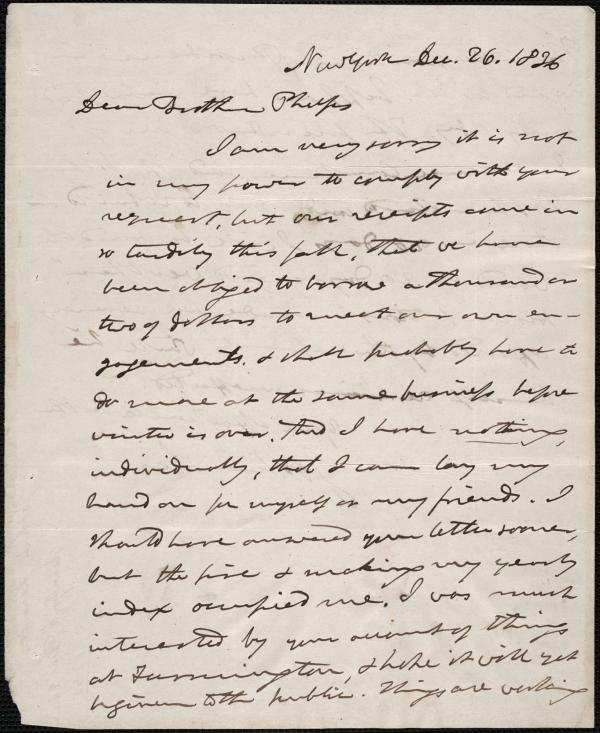 New York Dec. 26. 1836
Dear Brother Phelps
I am very sorry it is not
in my power to comply with your
request, but our receipts come in
so tardily this fall, that we have
been obliged to borrow a thousand or
two of dollars to meet our own en-
gagements. & shall probably have to
do more at the same business before
winter is over. And I have nothing,
individually, that I can lay my
hand on for myself or my friends. I
should have answered your letter sooner,
but the fire & making my yearly
index occupied me. I was much
interested by your account of things
at Farmington, & hope it will yet
be given to the public. Things are working